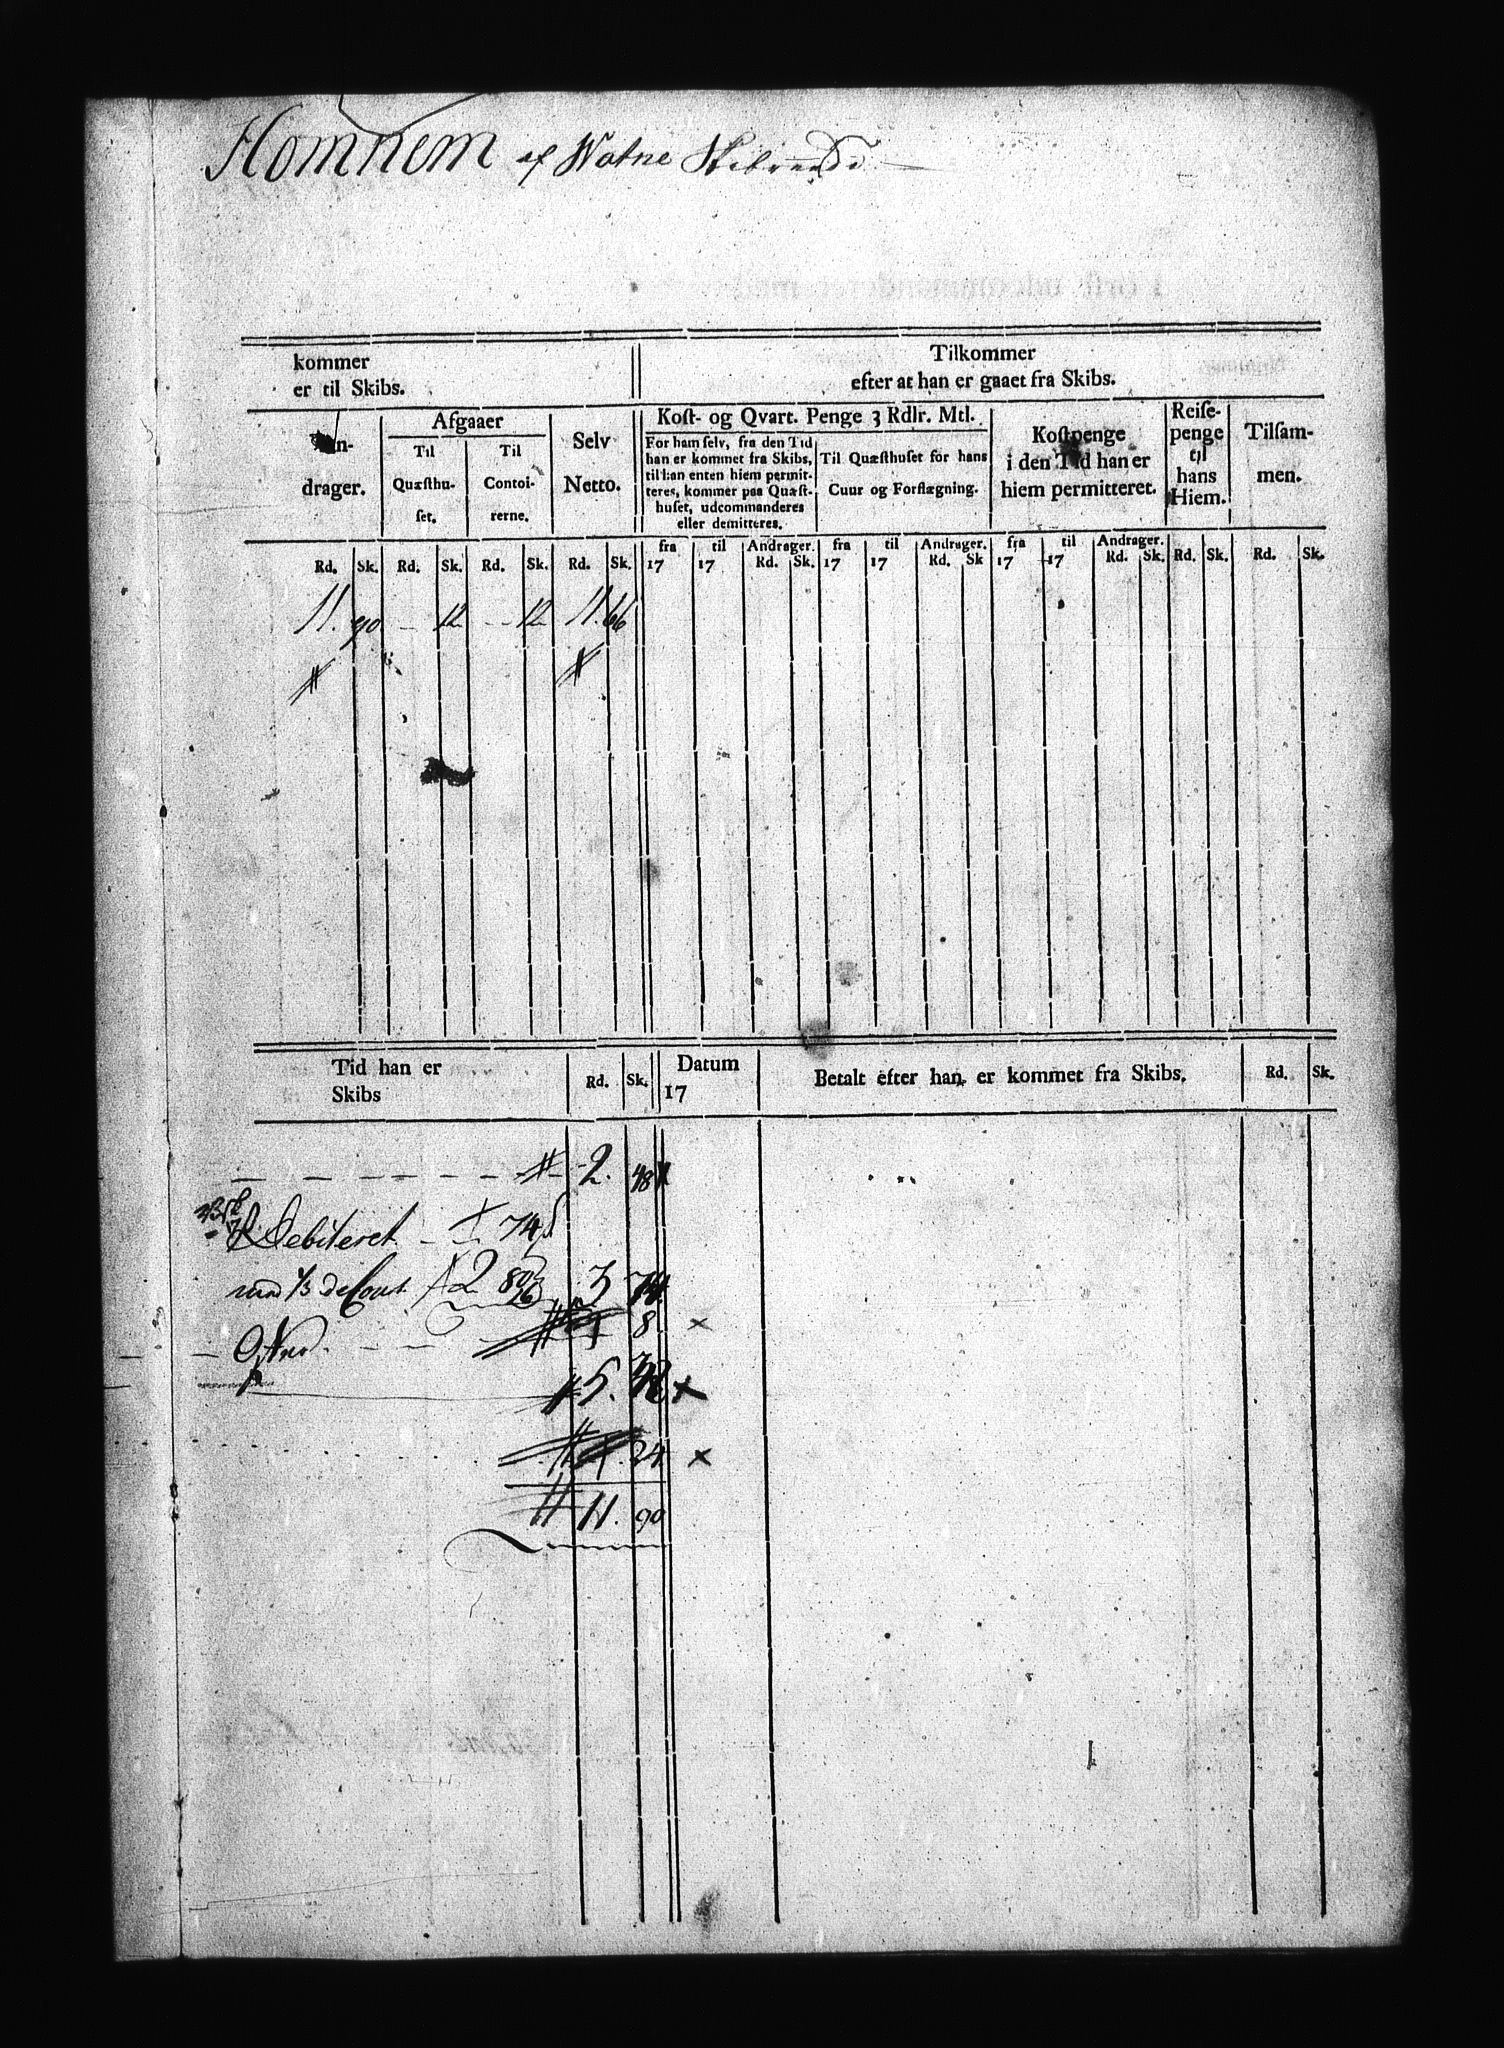 Homnem af Watne Skibrede
kommer
er til Skibs.
Tilkommer
efter at han er gaaet fra Skibs.
An-
drager.
Afgaaer
Til
Quæsthu-
set.
Til
Contoi-
rerne.
Selv
Netto.
Kost- og Qvart. Penge 3 Rdlr. Mtl.
For ham selv, fra den Tid
han er kommet fra Skibs,
til han enten hiem permit-
teres, kommer paa Quæst-
huset, udcommanderes
eller demitteres.
Til Quæsthuset for hans
Cuur og Forflægning.
Kostpenge
i den Tid han er
hiem permitteret.
Reise-
penge
til
hans
Hiem.
Tilsam-
men.
fra til Andrager. fra til Andrager. fra til Andrager.
Rd. Sk. Rd. Sk. Rd. Sk. Rd. Sk. 17 17 Rd. Sk. 17 17 Rd. Sk 17 17 Rd. Sk. Rd. Sk. Rd. Sk.
11. 90 — 12 — 12 11. 66
Tid han er
Skibs
Rd. Sk.
Datum
17
Betalt efter han er kommet fra Skibs.
Rd. Sk.
2. 48
Debiteret 74
1/3 de Cout 2 80 3 74
26
8
5.
24
11. 90